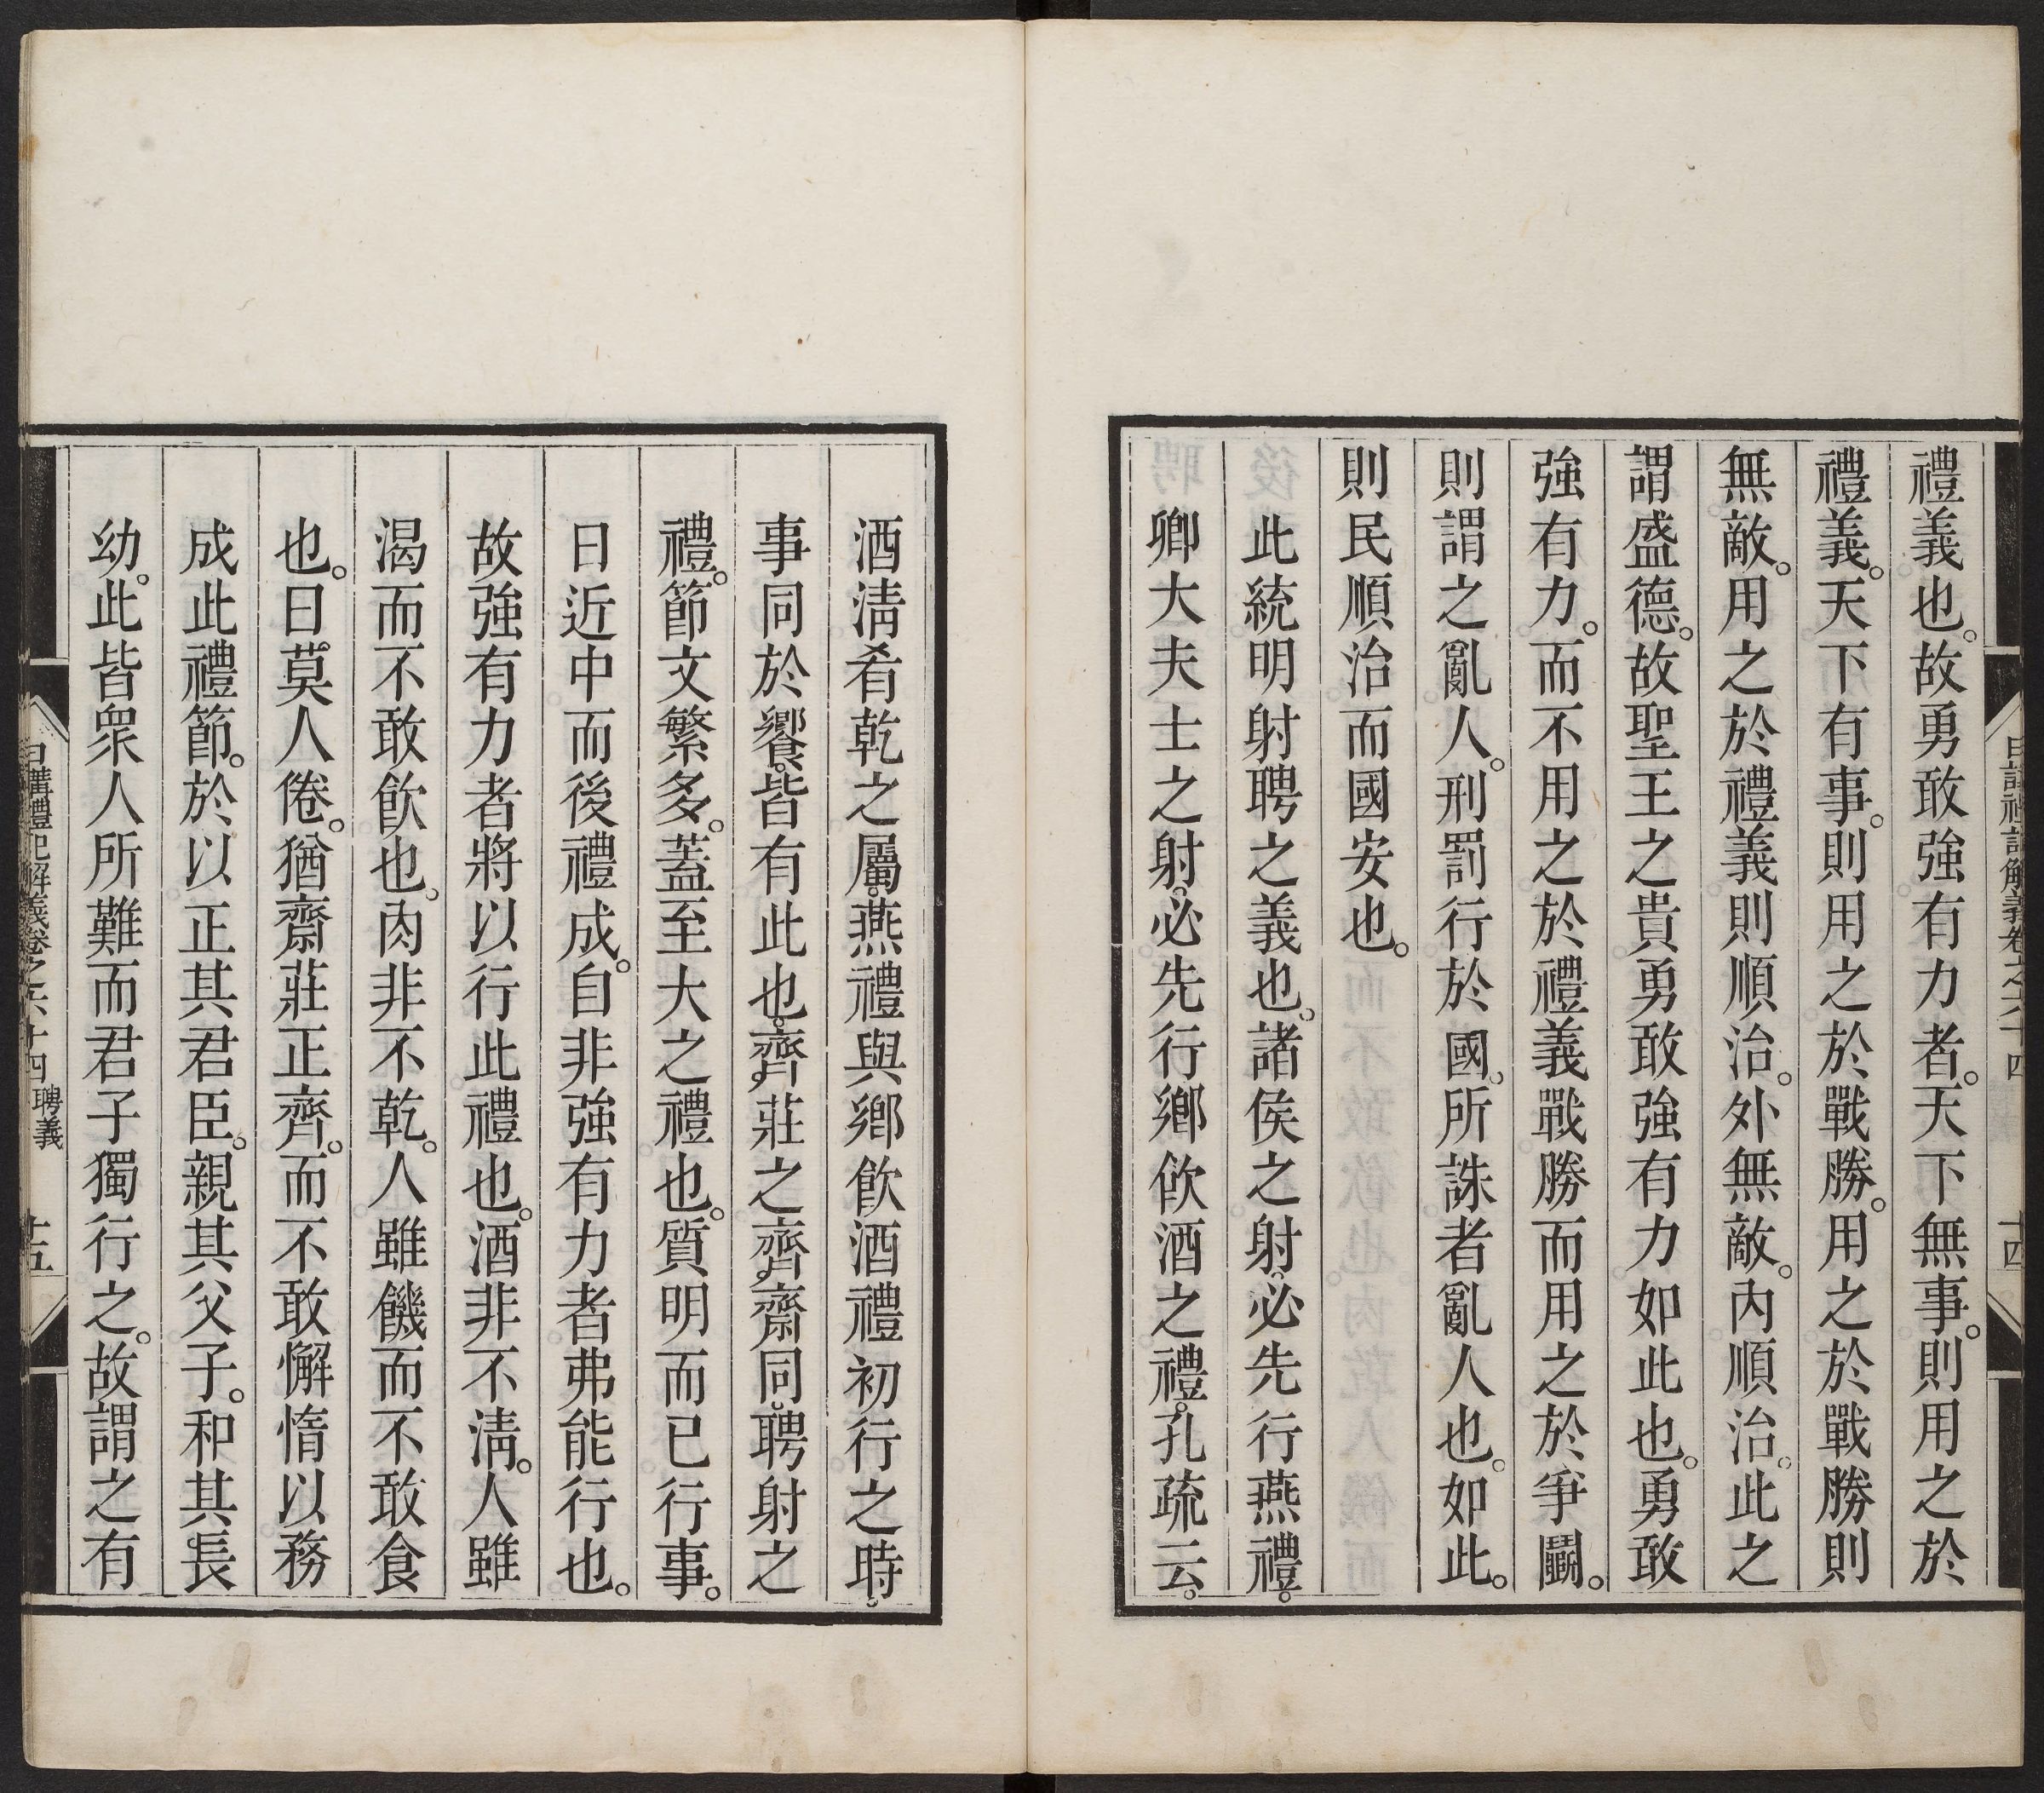 禮義也。故勇敢強有力者。天下無事。則用之於
禮義。天下有事。則用之於戰勝。用之於戰勝則
無敵。用之於禮義則順治。外無敵。內順治。此之
謂盛德。故聖王之貴勇敢強有力如此也。勇敢
強有力。而不用之於禮義戰勝而用之於爭鬬。
則謂之亂人。刑罰行於國。所誅者亂人也。如此。
則民順治而國安也。
此統明射聘之義也。諸侯之射。必先行燕禮。
卿大夫士之射。必先行鄉飲酒之禮。孔疏云。
日講禮記解義卷之六十四 十四
酒清肴乾之屬。燕禮與鄉飲酒禮初行之時。
事同於饗。皆有此也。齊。莊之齊。齋同。聘射之
禮。節文繁多。蓋至大之禮也。質明而已行事。
日近中而後禮成。自非強有力者弗能行也。
故強有力者將以行此禮也。酒非不清。人雖
渴而不敢飲也。肉非不乾。人雖饑而不敢食
也。日莫人倦。猶齋莊正齊。而不敢懈惰以務
成此禮節。於以正其君臣。親其父子。和其長
幼。此皆眾人所難而君子獨行之。故謂之有
日講禮記解義卷之六十四 聘義 十五